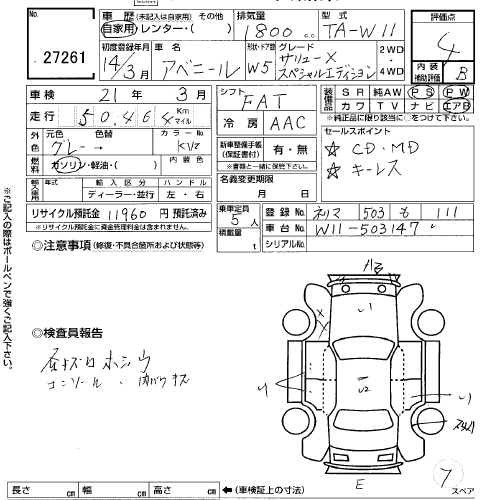 No.
27261
車歴 (未記入は自家用) その他
自家用・レンター・( )
排気量
1800 cc
型式
TA-W11
評価点
4
初度登録年月
14/3月
車名
アベニール
形状・ドア数
W5
グレード
サリューX
スペシャルエディション
2WD
・
4WD
内装
補助評価
B
車検
21年 3月
シフト
FAT
装備品
SR 純AW PS PW
カワ TV ナビ エアB
※純正品に限り該当に○をつけて下さい。
走行
50,464 Km
マイル
冷房
AAC
セールスポイント
☆ CD・MD
☆ キーレス
外色
元色 色替
グレー→
カラーNo
KV2
燃料
ガソリン・軽油・( )
内装色
新車整備手帳
(保証書付)
有・無
※書類と一緒に保管して下さい。
輸入車用
年式
輸入区分
ディーラー・並行
ハンドル
左・右
名義変更期限
月 日
リサイクル預託金 11960 円 預託済み
※リサイクル預託金に資金管理料金は含まれません。
乗車定員
5人
積載量
t
登録No
ネリマ 503 も 111
車台No
W11-503147
シリアルNo
◎注意事項 (修復・不具合箇所および状態等)
※ご記入の際はボールペンで強くご記入下さい。
◎検査員報告
コンソール・内バリキズ
A3
E
7
スペア
長さ cm 幅 cm 高さ cm ←(車検証上の寸法)